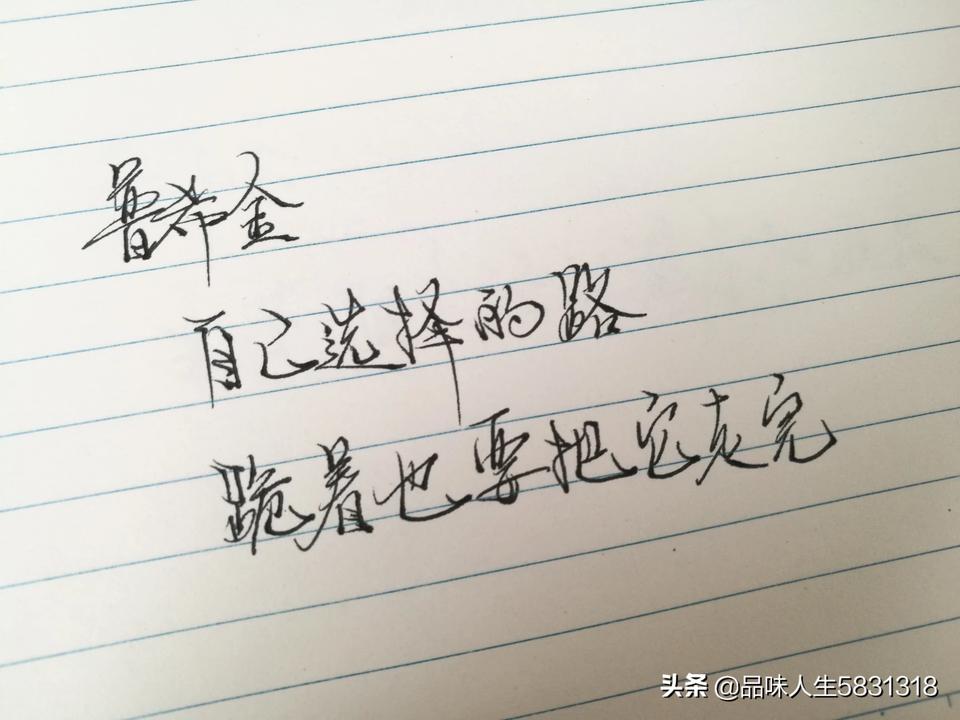 普希金
自己选择的路
跪着也要把它走完
头条 @品味人生5831318